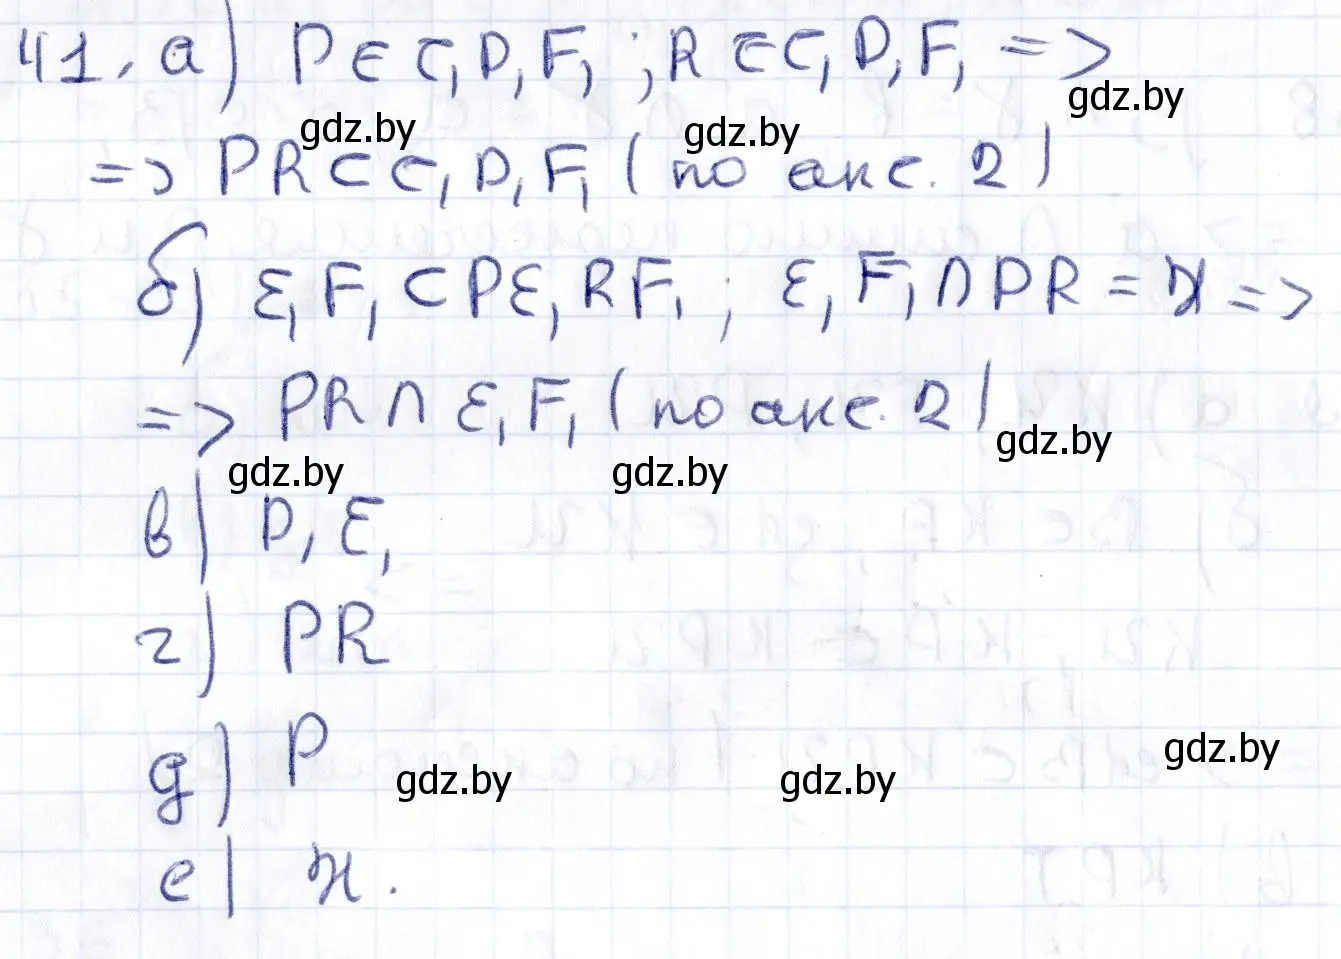 41. а) P∈C₁D₁F₁ ; R∈C₁D₁F₁ =>
gdz.by
gdz.by gdz.by
=> PR⊂C₁D₁F₁ (по акс. 2)
б) E₁F₁⊂PE₁RF₁ ; E₁F₁∩PR = X =>
=> PR∩E₁F₁ (по акс. 2)
gdz.by
gdz.by gdz.by
в) D₁E₁
г) PR
д) P
gdz.by
gdz.by gdz.by
е) X.